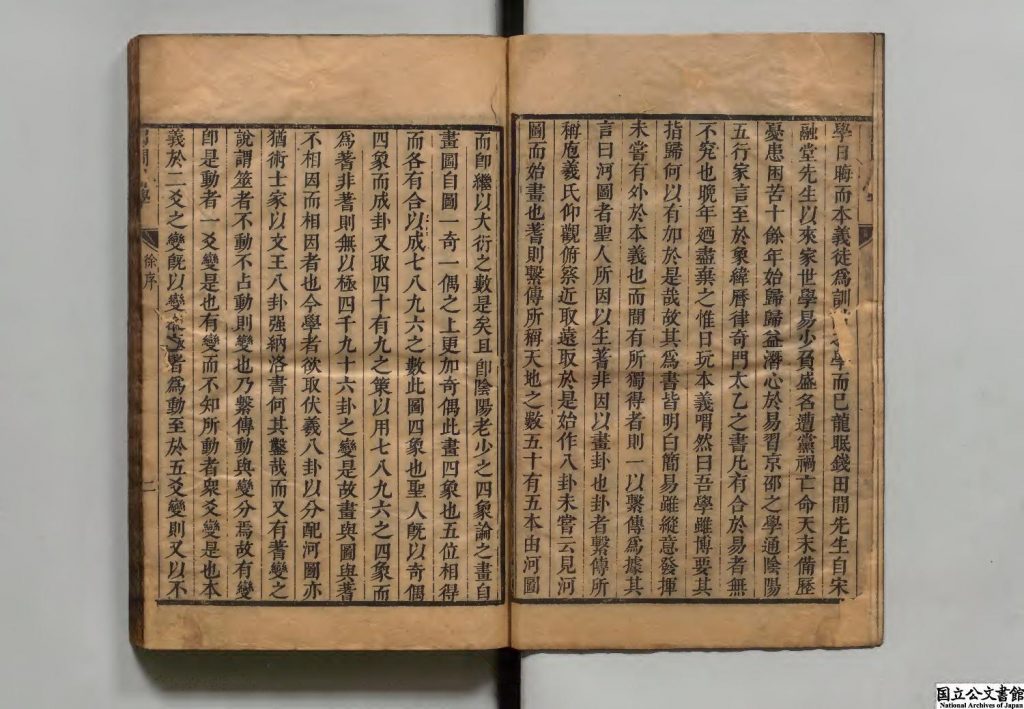 學日晦而本義徒爲訓學而已龍眠錢田間先生自宋
融堂先生以來家世學易少負盛名遭黨禍亡命天末備歷
憂患困苦十餘年始歸歸益潛心於易習京邵之學通陰陽
五行家言至於象緯曆律奇門太乙之書凡有合於易者無
不究也晚年廼盡棄之惟日玩本義喟然曰吾學雖博要其
指歸何以有加於是哉故其爲書皆明白簡易雖縱意發揮
未嘗有外於本義也而間有所獨得者則一以繫傳爲據其
言曰河圖者聖人所因以生蓍非因以畫卦也卦者繫傳所
稱庖羲氏仰觀俯察近取遠取於是始作八卦未嘗云見河
圖而始畫也蓍則繫傳所稱天地之數五十有五本由河圖
而卽繼以大衍之數是矣且卽陰陽老少之四象論之畫自
畫圖自圖一奇一偶之上更加奇偶此畫四象也五位相得
而各有合以成七八九六之數此圖四象也聖人旣以奇偶
四象而成卦又取四十有九之策以用七八九六之四象而
爲蓍非蓍則無以極四千九十六卦之變是故畫與圖與蓍
不相因而相因者也今學者欲取伏羲八卦以分配河圖亦
猶術士家以文王八卦强納洛書何其鑿哉而又有蓍變之
說謂筮者不動不占動則變也乃繫傳動與變分焉故有變
卽是動者一爻變是也有變而不知所動者衆爻變是也本
義於二爻之變旣以變者爲動至於五爻變則又以不
徐序
二
国立公文書館
National Archives of Japan